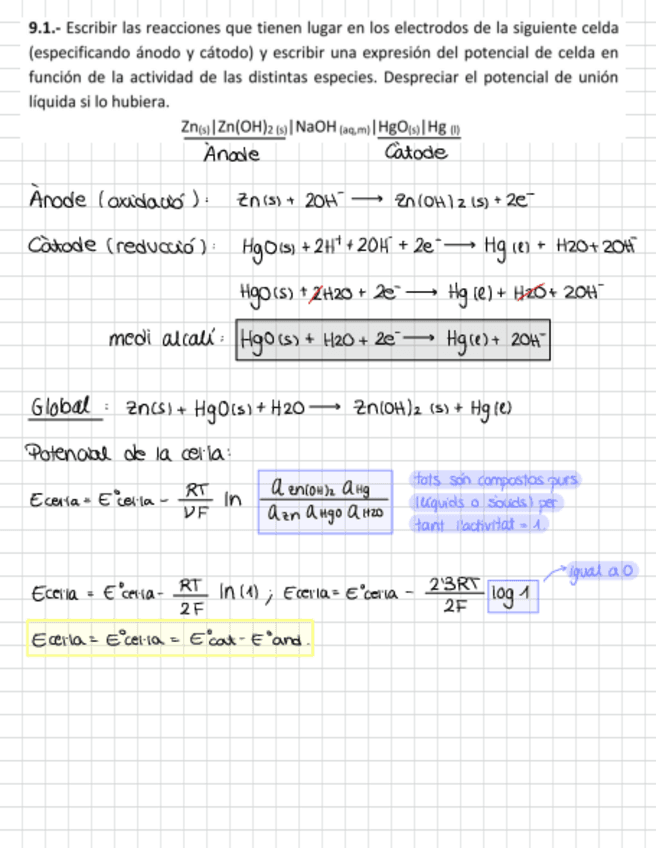 9.1.- Escribir las reacciones que tienen lugar en los electrodos de la siguiente celda
(especificando ánodo y cátodo) y escribir una expresión del potencial de celda en
función de la actividad de las distintas especies. Despreciar el potencial de unión
líquida si lo hubiera.
Zn(s)|Zn(OH)2 (s)|NaOH (aq,m)|HgO(s)|Hg (l)
Ànode Càtode
Ànode (oxidació): Zn(s) + 2OH⁻ → Zn(OH)2(s) + 2e⁻
Càtode (reducció): HgO(s) + 2H⁺ + 2OH⁻ + 2e⁻ → Hg(l) + H2O + 2OH⁻
HgO(s) + 2H2O + 2e⁻ → Hg(l) + H2O + 2OH⁻
medi alcalí: HgO(s) + H2O + 2e⁻ → Hg(l) + 2OH⁻
Global: Zn(s) + HgO(s) + H2O → Zn(OH)2 (s) + Hg(l)
Potencial de la cel·la:
Ecel·la = E°cel·la - RT/νF ln a Zn(OH)2 a Hg / a Zn a HgO a H2O
tots són compostos purs
(líquids o sòlids) per
tant l'activitat = 1.
igual a 0
Ecel·la = E°cel·la - RT/2F ln(1) ; Ecel·la = E°cel·la - 2'3RT/2F log 1
Ecel·la = E°cel·la = E°cat - E°and.